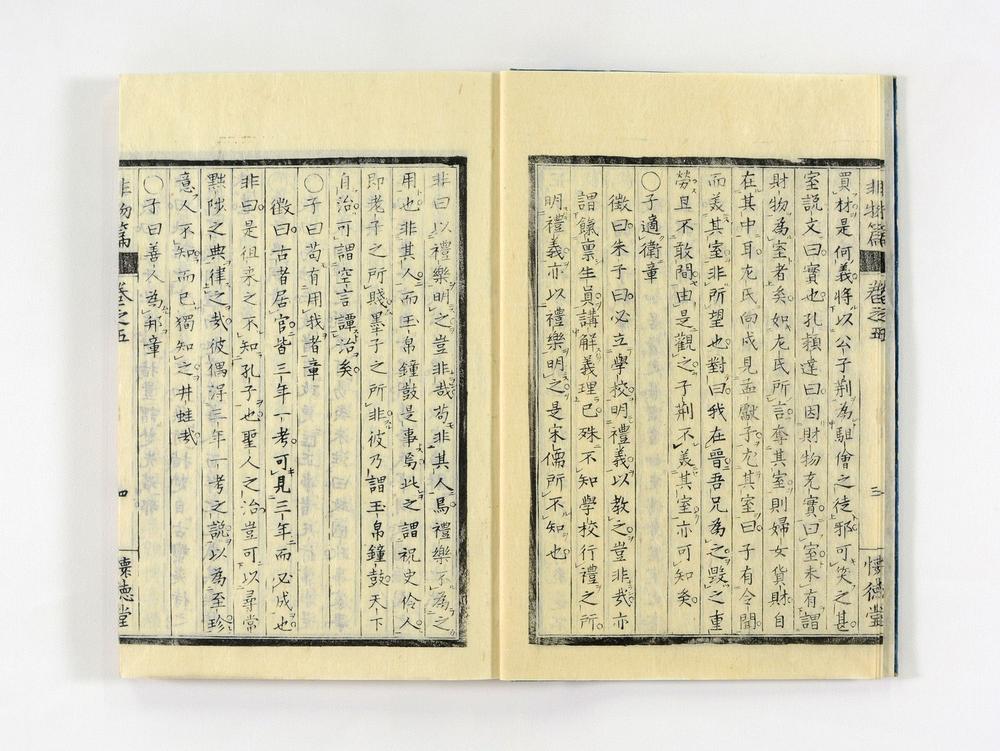 非物篇 卷之五 三 懷德堂
買材是何義將以公子荊為駔儈之徒邪可笑之甚
室説文曰實也孔穎達曰因財物充實曰室未有謂
財物為室者矣如左氏所言奪其室則婦女貨財自
在其中耳左氏向戌見孟獻子尤其室曰子有令聞
而美其室非所望也對曰我在晉吾兄為之毀之重
勞且不敢間由是觀之子荊不美其室亦可知矣
○子適衛章
徵曰朱子曰必立學校明禮義以教之豈非哉亦
謂餼廩生員講解義理已殊不知學校行禮之所
明禮義亦以禮樂明之是宋儒所不知也
非曰以禮樂明之豈非哉苟非其人焉禮樂不為之
用也非其人而玉帛鐘鼓是事焉此之謂祝史伶人
即老子之所賤墨子之所非彼乃謂玉帛鐘鼓天下
自治可謂空言譚治矣
○子曰苟有用我者章
徵曰古者居官皆三年一考可見三年而必成也
非曰是徂来之不知孔子也聖人之治豈可以尋常
黜陟之典律之哉彼偶得三年一考之説以為至珍
意人不知而已獨知之井蛙哉
○子曰善人為邦章
非物篇 卷之五 四 懷德堂